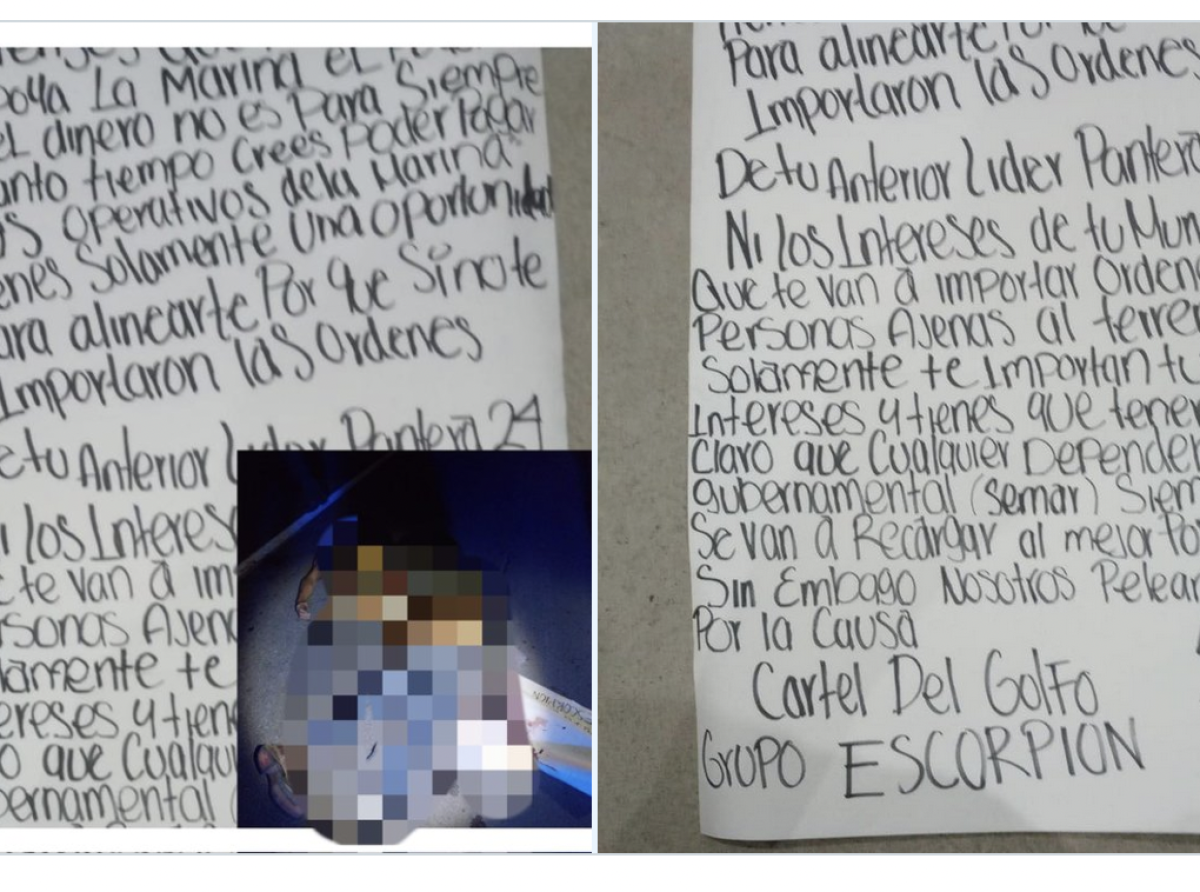 La Marina el Poder
el dinero no es Para Siempre
tiempo crees Poder Pagar
operativos dela Marina
Solamente Una oportunidad
alinearte Por que Sinote
Importaron laS Ordenes
Anterior Lider Pantera 24
los Interes
te van a im
Ajen
te
y tien
que Cualqu
Para alinearte
Importaron laS Ordenes
De tu Anterior Lider Pantera
Ni los Intereses de tu Mun
Que te van a importar Ordene
Personas Ajenas al terre
Solamente te Importan tu
Intereses y tienes que tene
Claro que Cualquier Depende
gubernamental (semar) Siem
Se van a Recargar al mejor Po
Sin Embago Nosotros Pelea
Por la Causa
Cartel Del Golfo
Grupo ESCORPION